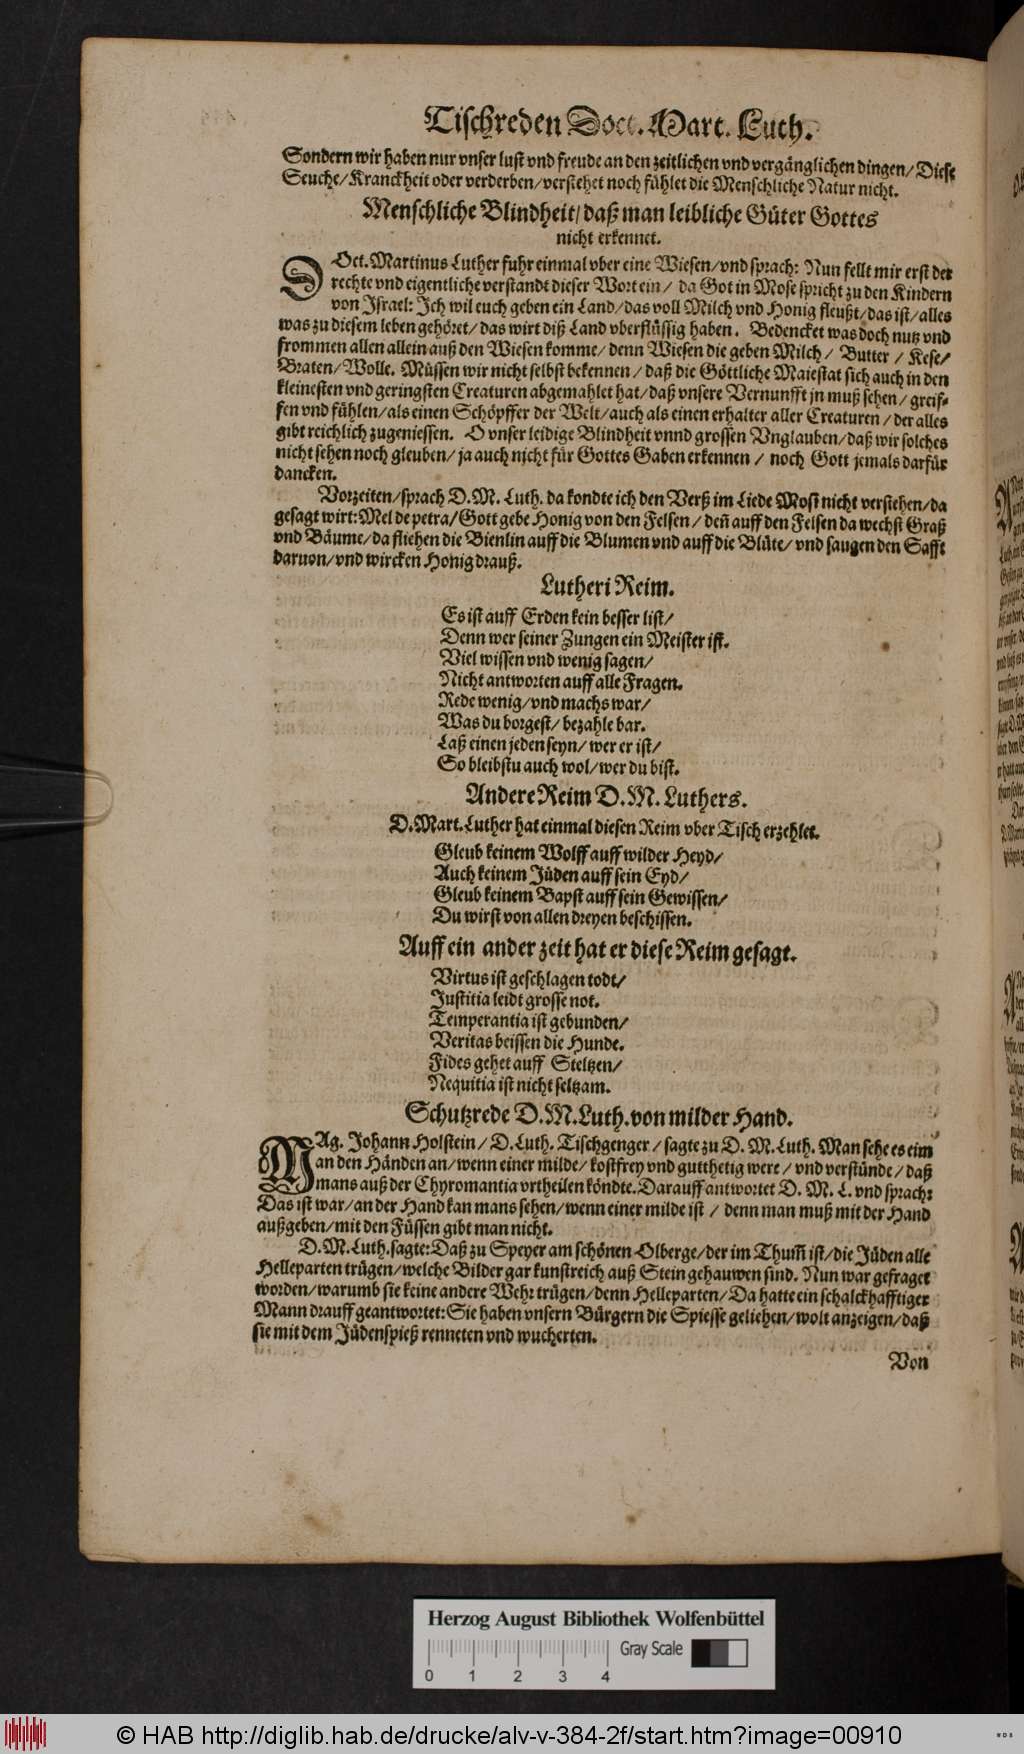 Tischreden Doct. Mart. Luth.
Sondern wir haben nur vnser lust vnd freude an den zeitlichen vnd vergänglichen dingen/ Diese
Seuche/Kranckheit oder verderben/verstehet noch fühlet die Menschliche Natur nicht.
Menschliche Blindheit/ daß man leibliche Güter Gottes
nicht erkennet.
DOct. Martinus Luther fuhr einmal vber eine Wiesen/vnd sprach: Nun fellt mir erst der
rechte vnd eigentliche verstandt dieser Wort ein/ da Got in Mose spricht zu den Kindern
von Israel: Ich wil euch geben ein Land/das voll Milch vnd Honig fleußt/das ist/alles
was zu diesem leben gehöret/das wirt diß Land vberflüssig haben. Bedencket was doch nutz vnd
frommen allen allein auß den Wiesen komme/denn Wiesen die geben Milch/ Butter/ Kese/
Braten/Wolle. Müssen wir nicht selbst bekennen/daß die Göttliche Maiestat sich auch in den
kleinesten vnd geringsten Creaturen abgemahlet hat/daß vnsere Vernunfft jn muß sehen/greif-
fen vnd fühlen/als einen Schöpffer der Welt/auch als einen erhalter aller Creaturen/der alles
gibt reichlich zugeniessen. O vnser leidige Blindheit vnnd grossen Vnglauben/daß wir solches
nicht sehen noch gleuben/ja auch nicht für Gottes Gaben erkennen/ noch Gott jemals darfür
dancken.
Vorzeiten/sprach D.M. Luth. da kondte ich den Verß im Liede Mosi nicht verstehen/da
gesagt wirt: Mel de petra/Gott gebe Honig von den Felsen/ deñ auff den Felsen da wechst Graß
vnd Bäume/da fliehen die Bienlin auff die Blumen vnd auff die Blüte/vnd saugen den Safft
daruon/vnd wircken Honig drauß.
Lutheri Reim.
Es ist auff Erden kein besser list/
Denn wer seiner Zungen ein Meister ist.
Viel wissen vnd wenig sagen/
Nicht antworten auff alle Fragen.
Rede wenig/vnd machs war/
Was du borgest/ bezahle bar.
Laß einen jeden seyn/ wer er ist/
So bleibstu auch wol/wer du bist.
Andere Reim D.M. Luthers.
D. Mart. Luther hat einmal diesen Reim vber Tisch erzehlet.
Gleub keinem Wolff auff wilder Heyd/
Auch keinem Jüden auff sein Eyd/
Gleub keinem Bapst auff sein Gewissen/
Du wirst von allen dreyen beschissen.
Auff ein ander zeit hat er diese Reim gesagt.
Virtus ist geschlagen todt/
Justitia leidt grosse not.
Temperantia ist gebunden/
Veritas beissen die Hunde.
Fides gehet auff Steltzen/
Nequitia ist nicht seltzam.
Schutzrede D.M. Luth. von milder Hand.
MAg. Johann Holstein/ D. Luth. Tischgenger/sagte zu D. M. Luth. Man sehe es eim
an den Händen an/wenn einer milde/kostfrey vnd gutthetig were/ vnd verstünde/daß
mans auß der Chyromantia vrtheilen köndte. Darauff antwortet D. M. L. vnd sprach:
Das ist war/an der Hand kan mans sehen/wenn einer milde ist/ denn man muß mit der Hand
außgeben/mit den Füssen gibt man nicht.
D.M. Luth. sagte: Daß zu Speyer am schönen Olberge/der im Thum̃ ist/die Jüden alle
Helleparten trügen/welche Bilder gar kunstreich auß Stein gehauwen sind. Nun war gefraget
worden/warumb sie keine andere Wehr trügen/denn Helleparten/Da hatte ein schalckhafftiger
Mann drauff geantwortet: Sie haben vnsern Bürgern die Spiesse geliehen/wolt anzeigen/daß
sie mit dem Jüdenspieß renneten vnd wucherten.
Von
Herzog August Bibliothek Wolfenbüttel
Gray Scale
0 1 2 3 4
© HAB http://diglib.hab.de/drucke/alv-v-384-2f/start.htm?image=00910